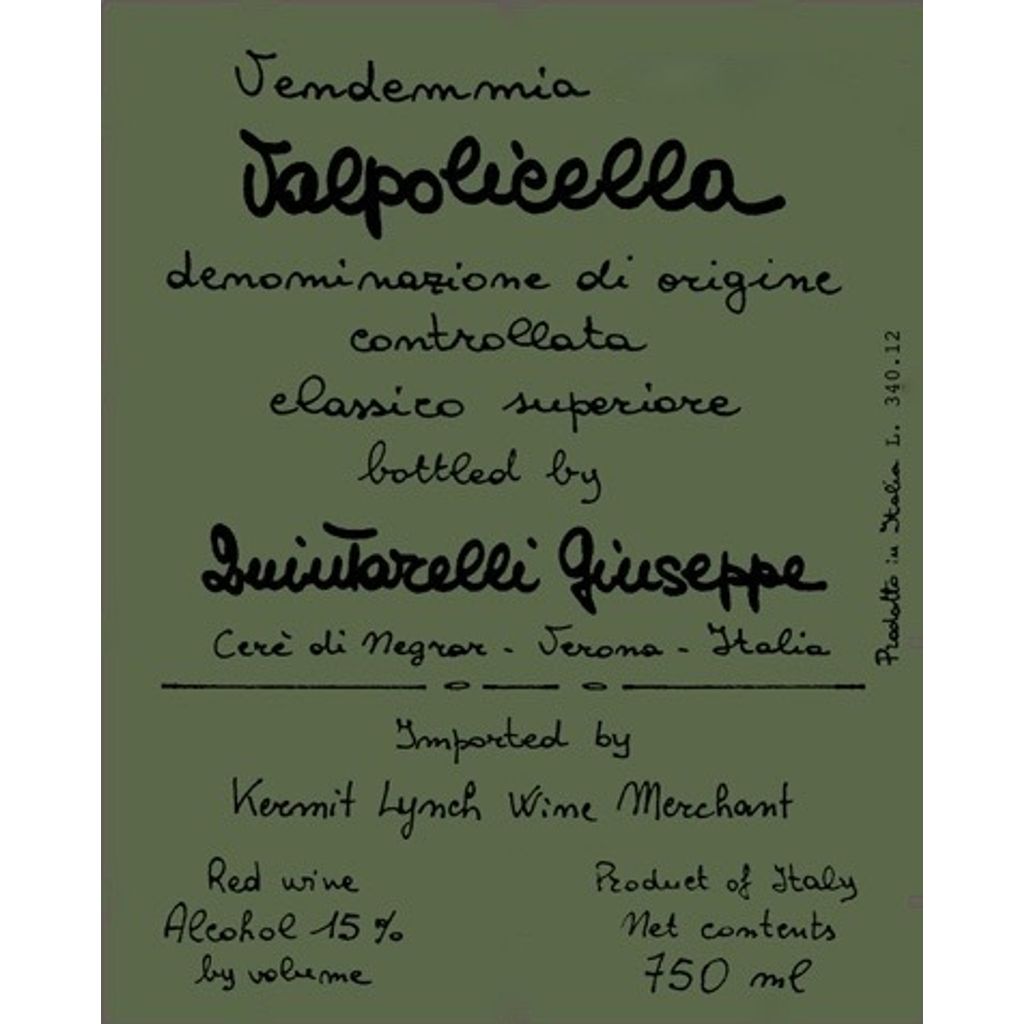 Vendemmia
Valpolicella
denominazione di origine
controllata
classico superiore
bottled by
Quintarelli Giuseppe
Cerè di Negrar - Verona - Italia
Prodotto in Italia L. 340.12
Imported by
Kermit Lynch Wine Merchant
Red wine
Alcohol 15 %
by volume
Product of Italy
Net contents
750 ml